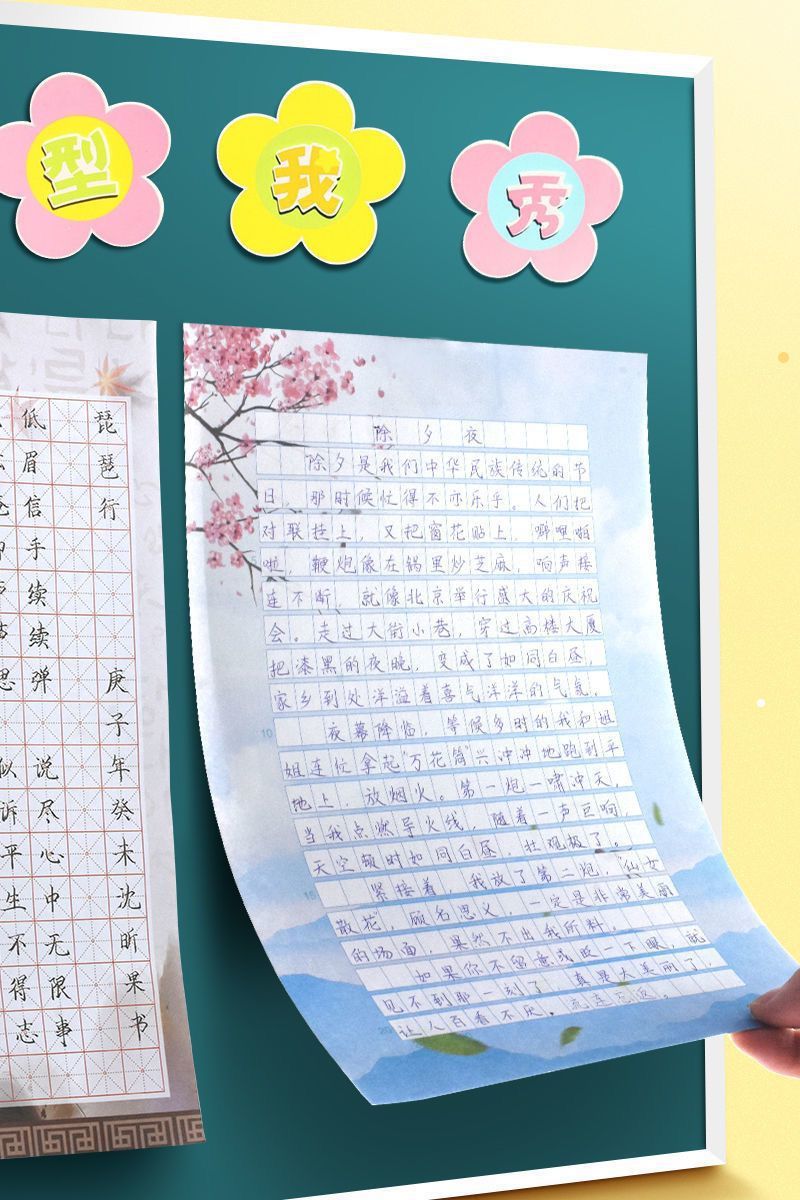 型 我 秀
低 琵
眉 琶
信 行
手
续
续
思弹 庚
子
似说 年
诉尽 癸
平心 未
生中 沈
不无 昕
得限 果
志事 书
除夕夜
除夕是我们中华民族传统的节
日，那时候忙得不亦乐乎。人们把
对联挂上，又把窗花贴上，噼哩啪
啦，鞭炮像在锅里炒芝麻，响声接
连不断，就像北京举行盛大的庆祝
会。走过大街小巷，穿过高楼大厦
把漆黑的夜晚，变成了如同白昼，
家乡到处洋溢着喜气洋洋的气氛，
10
夜幕降临，等候多时的我和姐
姐连忙拿起“万花筒”兴冲冲地跑到平
地上，放烟火。第一炮一啸冲天，
当我点燃导火线，随着一声巨响，
天空顿时如同白昼，壮观极了。
15
紧接着，我放了第二炮，“仙女
散花”，顾名思义，一定是非常美丽
的场面，果然不出我所料。
如果你不留意或眨一下眼，就
见不到那一刻了，真是太美丽了，
20
让人百看不厌，流连忘返。